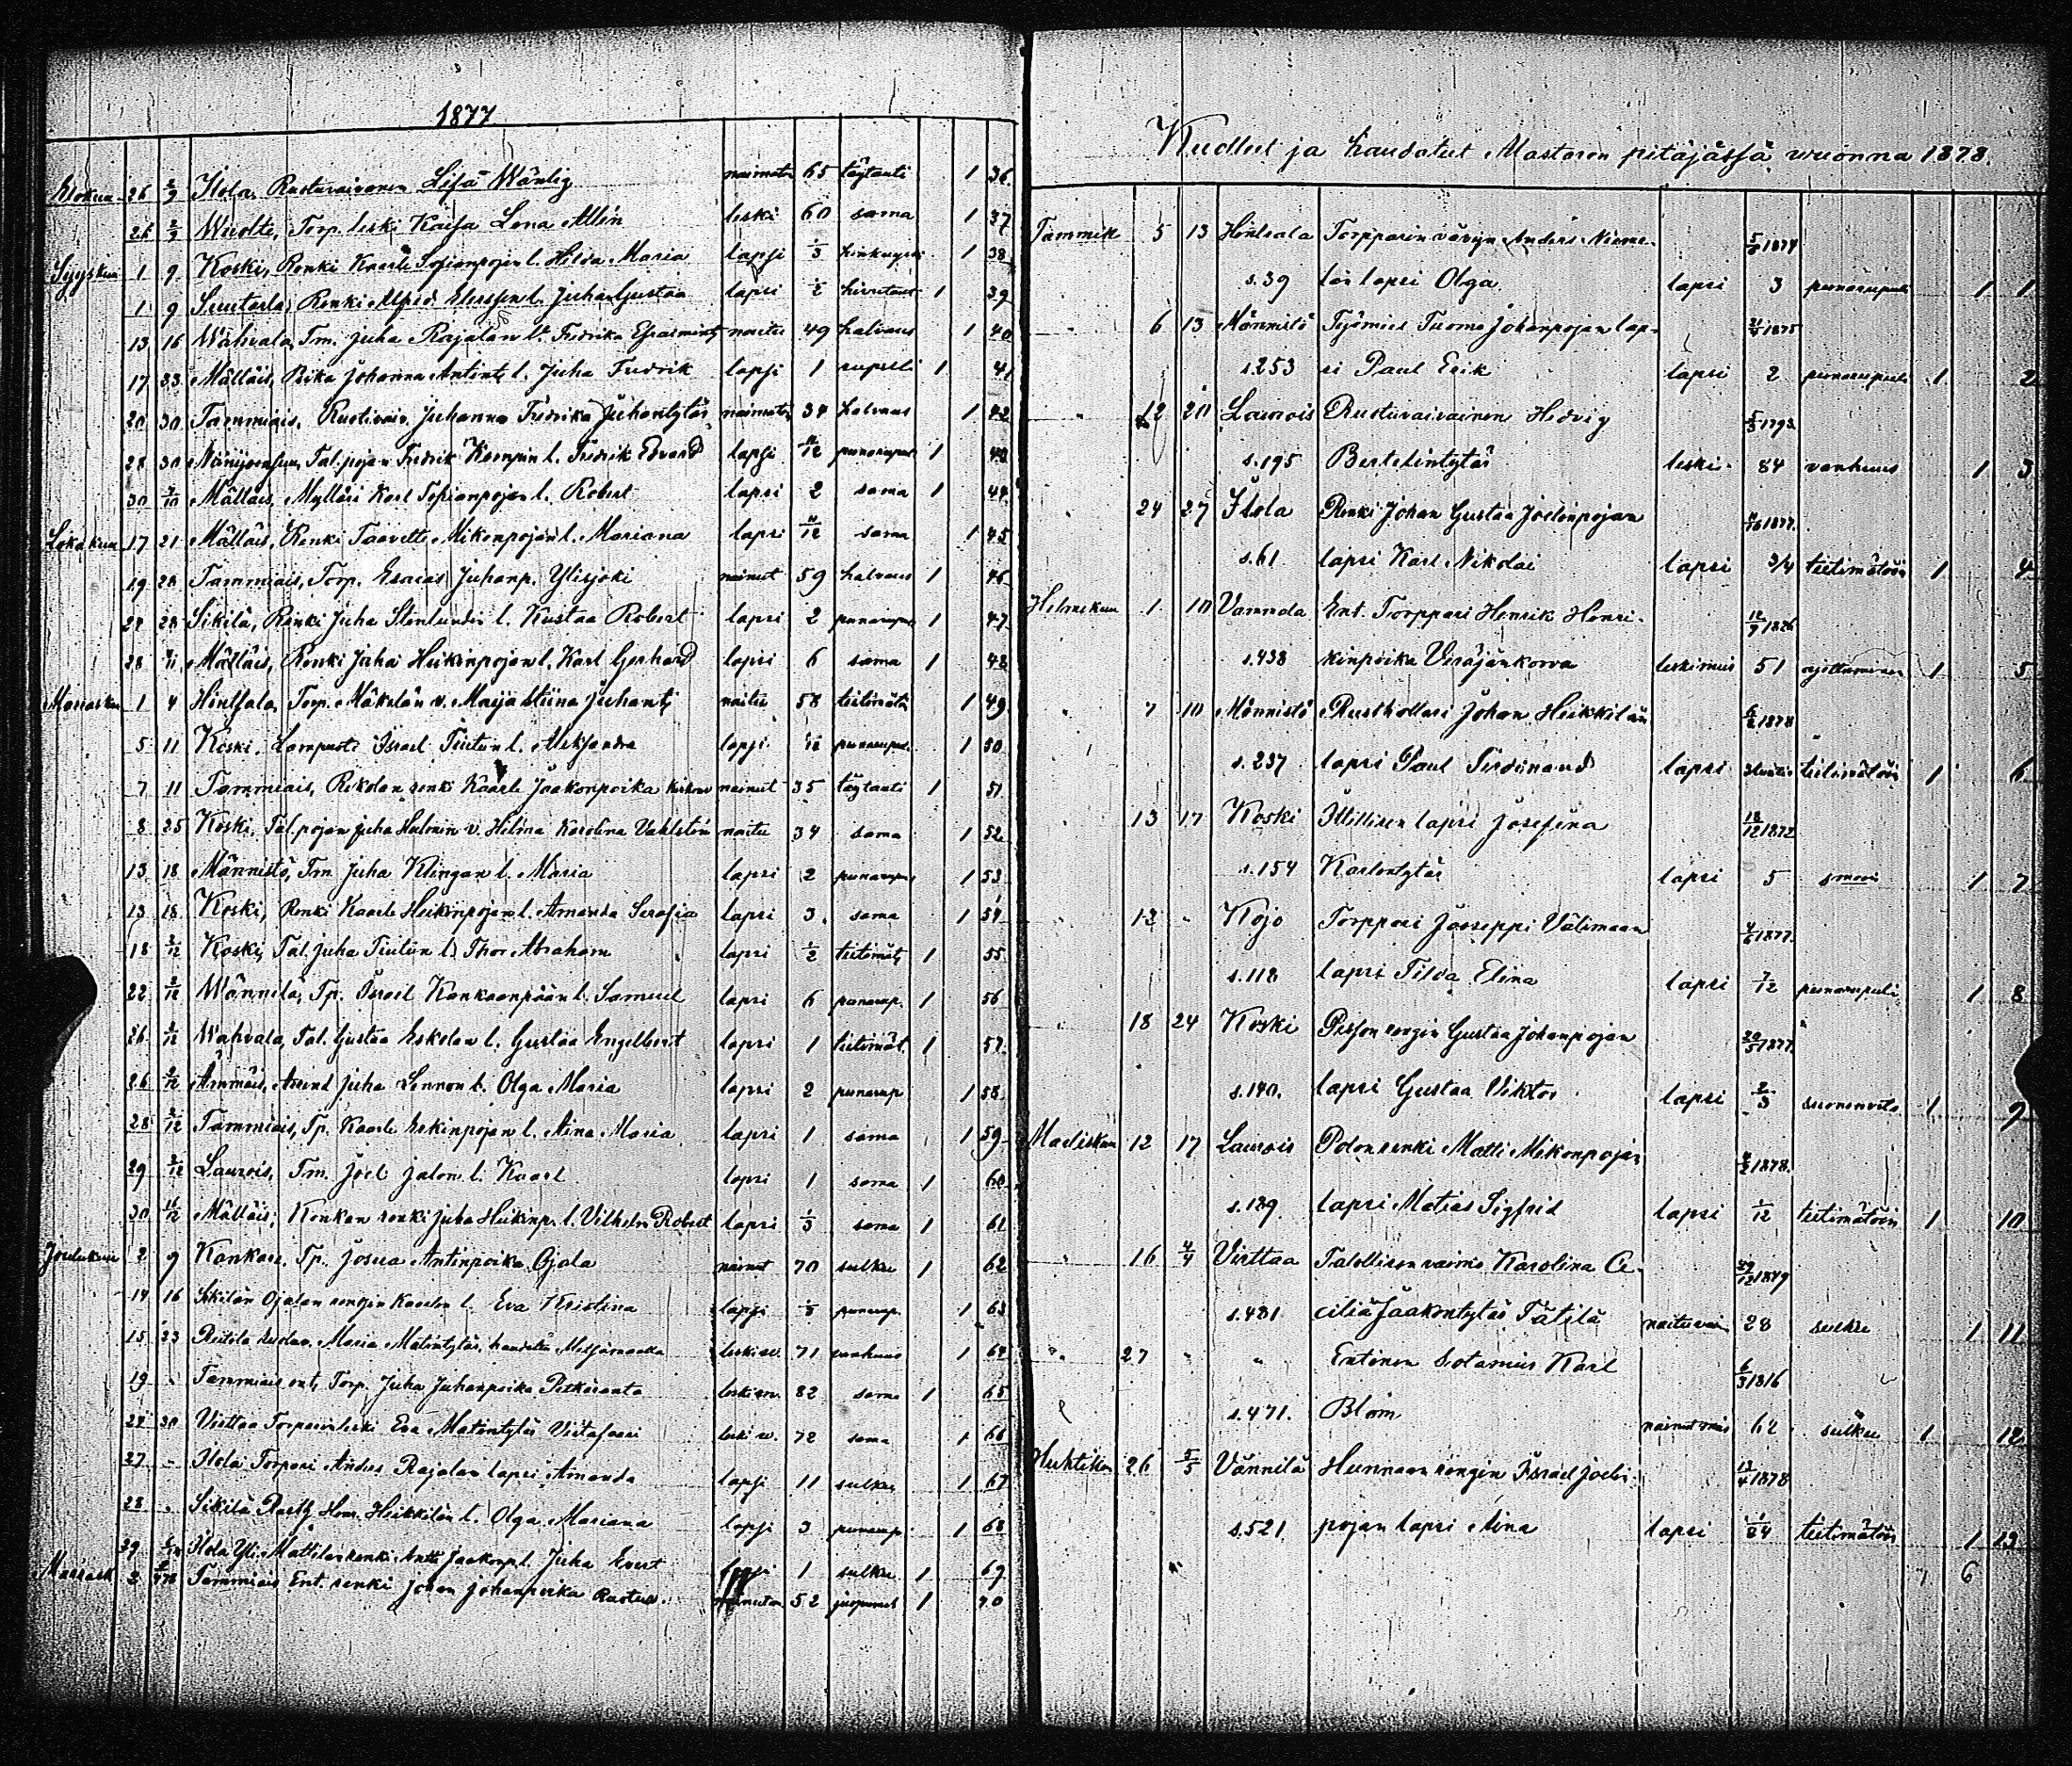 1877
Elokuu 26 2/9 Ilola, Ruotuvaivanen Lisa Wänlig naimatn 65 täytauti 1 36.
26 2/9 Wirolti, Torp. leski Kaisa Lena Allén leski 60 sama 1 37
Syyskuu 1 9 Koski, Renki Kaarle l. Hilda Maria lapsi 1/3 hinkuyskä 1 38
1 9 Suutarla, Renki Alfred l. Juha Gustaa lapsi 1/2 1 39
13 16 Wahvala, Tm. Juha Rajalan v. Fredrika naitu 49 halvaus 1 40
17 23 Mälläis, Piika Johanna Antint. l. Juha Fredrik lapsi 1 rupuli 1 41
20 30 Tammiais, Ruotivaiv. Juhanna Fredrika Juhantytär naimatn 34 halvaus 1 42
28 30 Tal. pojan Fredrik l. Fredrik Edvard lapsi 11/12 punarupul 1 43
30 7/10 Mälläis, Mylläri Karl l. Robert lapsi 2 sama 1 44
Lokakuu 17 21 Mälläis, Renki Taavetti Mikonpojan l. Mariana lapsi 11/12 sama 1 45
19 28 Tammiais, Torp. Esaias Juhanp. Ylisjoki nainut 59 halvaus 1 46
22 28 Sikilä, Renki Juha Stenlundin l. Kustaa Robert lapsi 2 punarupu 1 47
28 4/11 Mälläis, Renki Juha Heikinpojan l. Karl Gerhard lapsi 6 sama 1 48
Marrasku 1 4 Hintsala, Torp. Mäkelän v. Maija Stiina Juhant. naitu 58 tietimätö 1 49
5 11 Koski, Lampuoti Israel Tiutun l. Aleksandra lapsi punarupul. 1 50
7 11 Tammiais, Rekolan renki Kaarle Jaakonpoika nainut 35 täytauti 1 51
8 25 Koski, Tal. pojan Juha v. Hilma Karolina Vahlstén naitu 34 sama 1 52
13 18 Männistö, Tm. Juha Klingan l. Maria lapsi 2 punarupu 1 53
13 18 Koski, Renki Kaarle Heikinpojan l. Amanda Serafia lapsi 3 sama 1 54
18 2/12 Koski, Tal. Juha Tiutun l. Thor Abraham lapsi 1/2 tietimät. 1 55
22 2/12 Wännilä, Tp. Israel Kankaanpään l. Samuel lapsi 6 punarup. 1 56
26 2/12 Wahvala, Tal. Gustaa Eskolan l. Gustaa Engelbert lapsi 1 tietimät. 1 57
26 2/12 Ämmäis, Juha Lennon l. Olga Maria lapsi 2 punarup 1 58
28 2/12 Tammiais, Tp. Kaarle Erkinpojan l. Aina Maria lapsi 1 sama 1 59
29 2/12 Laurois, Tm. Joel Jalon l. Kaarl lapsi 1 sama 1 60
30 16/12 Mälläis, Konkan renki Juha Heikinp. l. Vilhelm Robert lapsi 1/3 sama 1 61
Joulukuu 2 9 Kankare, Tp. Josua Antinpoika Ojala nainut 70 sulku 1 62
14 16 Sikilän Ojalan rengin Kaarlen l. Eva Kristina lapsi 1/3 punarup. 1 63
15 23 Maria Matintytär, haudattu leski w. 71 vanhuus 1 64
19 Tammiais ent. Torp. Juha Juhanpoika Pitkäranta leski m. 82 sama 1 65
22 30 Virttaa Torparin leski Eva Matintytär Viitasaari leski w. 72 sama 1 66
27 Ilola Torpari Anders Rajalan lapsi Amanda lapsi 11 sulku 1 67
28 Sikilä Heikkilän l. Olga Mariana lapsi 3 punarup. 1 68
29 Ilola Yli-Mattilan renki Antti Jaakonp. l. Juha Evert lapsi 1 sulku 1 69
Marrask 2 Tammiais Ent. renki Johan Johanpoika naimaton 52 juopunut 1 70
Kuolleet ja haudatut Maskaren pitäjässä wuonna 1878.
Tammik 5 13 Hintsala Torpparin vävyn Anders Nieme- 5/ 1874
s. 39 län lapsi Olga lapsi 3 punarupuli 1 1
" 6 13 Männistö Työmies Tuomo Johanpojan lap- 1875
s. 253 si Paul Erik lapsi 2 punarupuli 1 2
" 12 20 Laurois Ruotuvaivainen Hedvig 5/3 1793
s. 195 Bertelintytär leski 84 vanhuus 1 3
" 24 27 Ilola Renki Johan Gustaa Joelinpojan 1877.
s. 61 lapsi Karl Nikolai lapsi 3/4 tietimätöin 1 4
Helmekuu 1 10 Vannila Ent. Torppari Henrik Henri- 12/9 1826
s. 438 kinpoika Viräjänkorva leskimies 51 1 5
" 7 10 Männistö Rusthollari Johan Heikkilän 6/2 1878
s. 237 lapsi Paul Ferdinand lapsi tietimätöin 1 6
" 13 17 Koski Itsellisen lapsi Josefina 18/12 1872
s. 154 Karlontytär lapsi 5 sama 1 7
" 12 " Kojo Torppari Jooseppi Välimaan 4/6 1877.
s. 118 lapsi Tilda Elina lapsi 7/12 punarupuli 1 8
" 18 24 Koski rengin Gustaa Johanpojan 20/5 1877.
s. 140. lapsi Gustaa Viktor lapsi 2/3 suonenveto 1 9
Maaliskuu 12 17 Laurois Polon renki Matti Mikonpojan 4/2 1878.
s. 189 lapsi Matias Sigfrid lapsi 1/12 tietimätöin 1 10
" 16 4/4 Virttaa Talollisen vaimo Karolina Ce- 29/12 1849
s. 481 ciliä Jaakontytär Tätilä naitu vai 28 sulku 1 11
" 27 " " Entinen Sotamies Karl 6/3 1816
s. 471. Blom nainut mies 62 sulku 1 12
Huhtikuu 26 5/5 Vännilä Hunnaan rengin Israel Joelin- 13/4 1878
s. 521 pojan lapsi Aina lapsi 1/24 tietimätöin 1 13
7 6